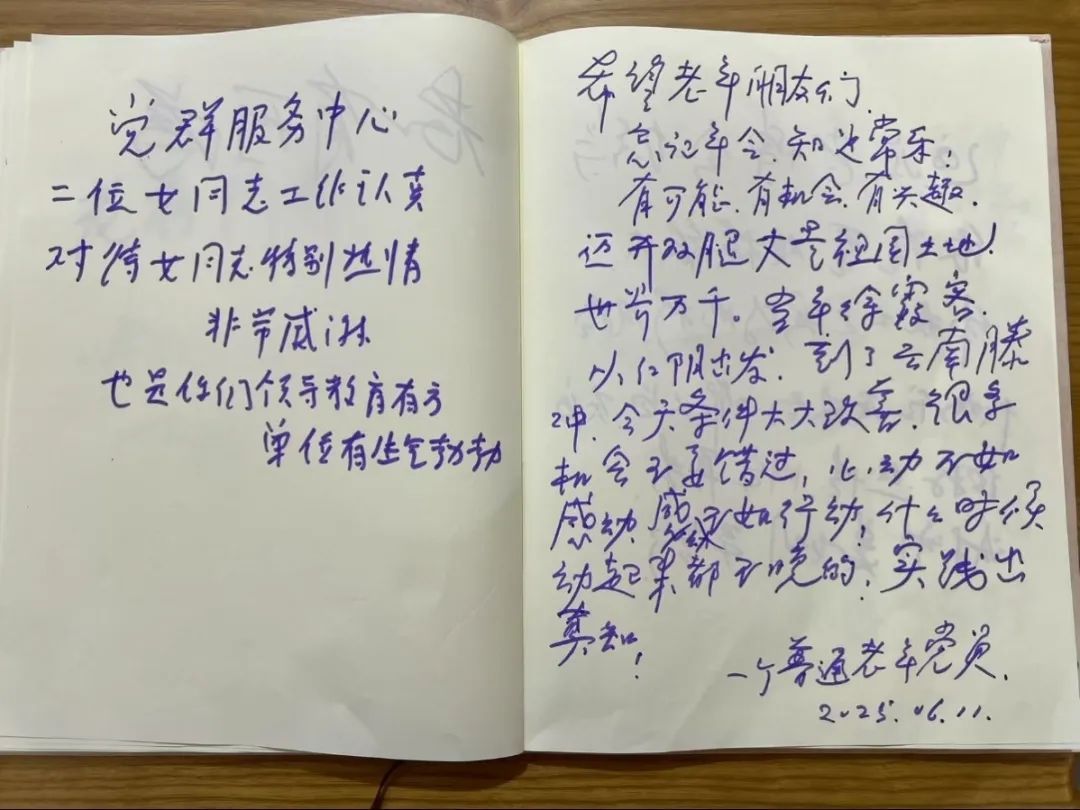 党群服务中心
二位女同志工作认真
对待女同志特别热情
非常感谢
也是你们领导教育有方
单位有生气勃勃
希望老年朋友们,
忘记年令、知足常乐!
有可能、有机会、有兴趣、
迈开双腿丈量祖国土地!
世界万千。当年徐霞客、
从江阴出发、到了云南腾
冲、今天条件大大改善、很多
机会不要错过,心动不如
感动、感动不如行动!什么时候
动起来都不晚的、实践出
真知!
一个普通老年党员、
2025.06.11.